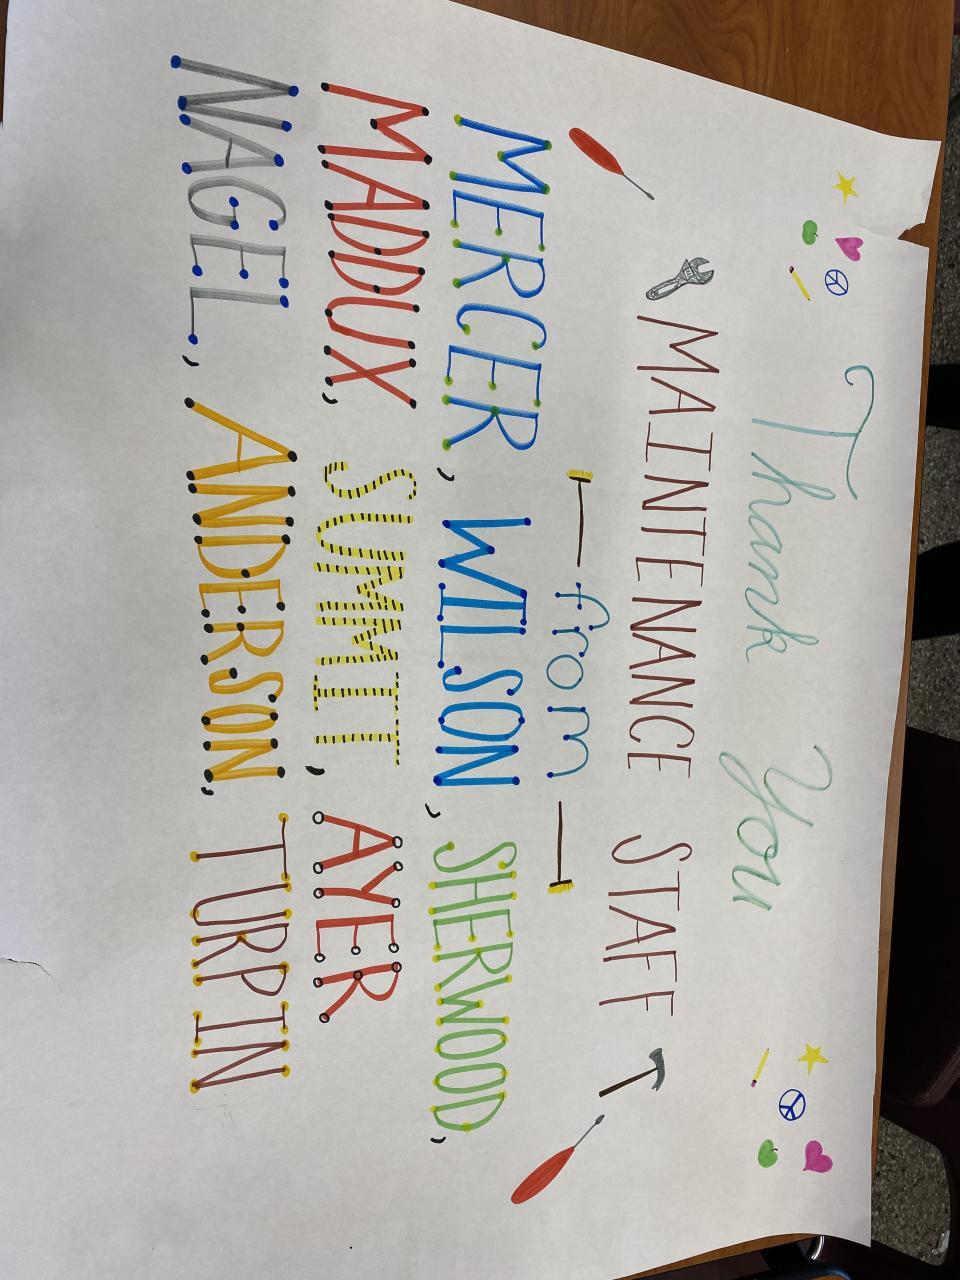 Thank You
MAINTENANCE STAFF
from
MERCER, WILSON, SHERWOOD,
MADDUX, SUMMIT, AYER
NAGEL, ANDERSON, TURPIN